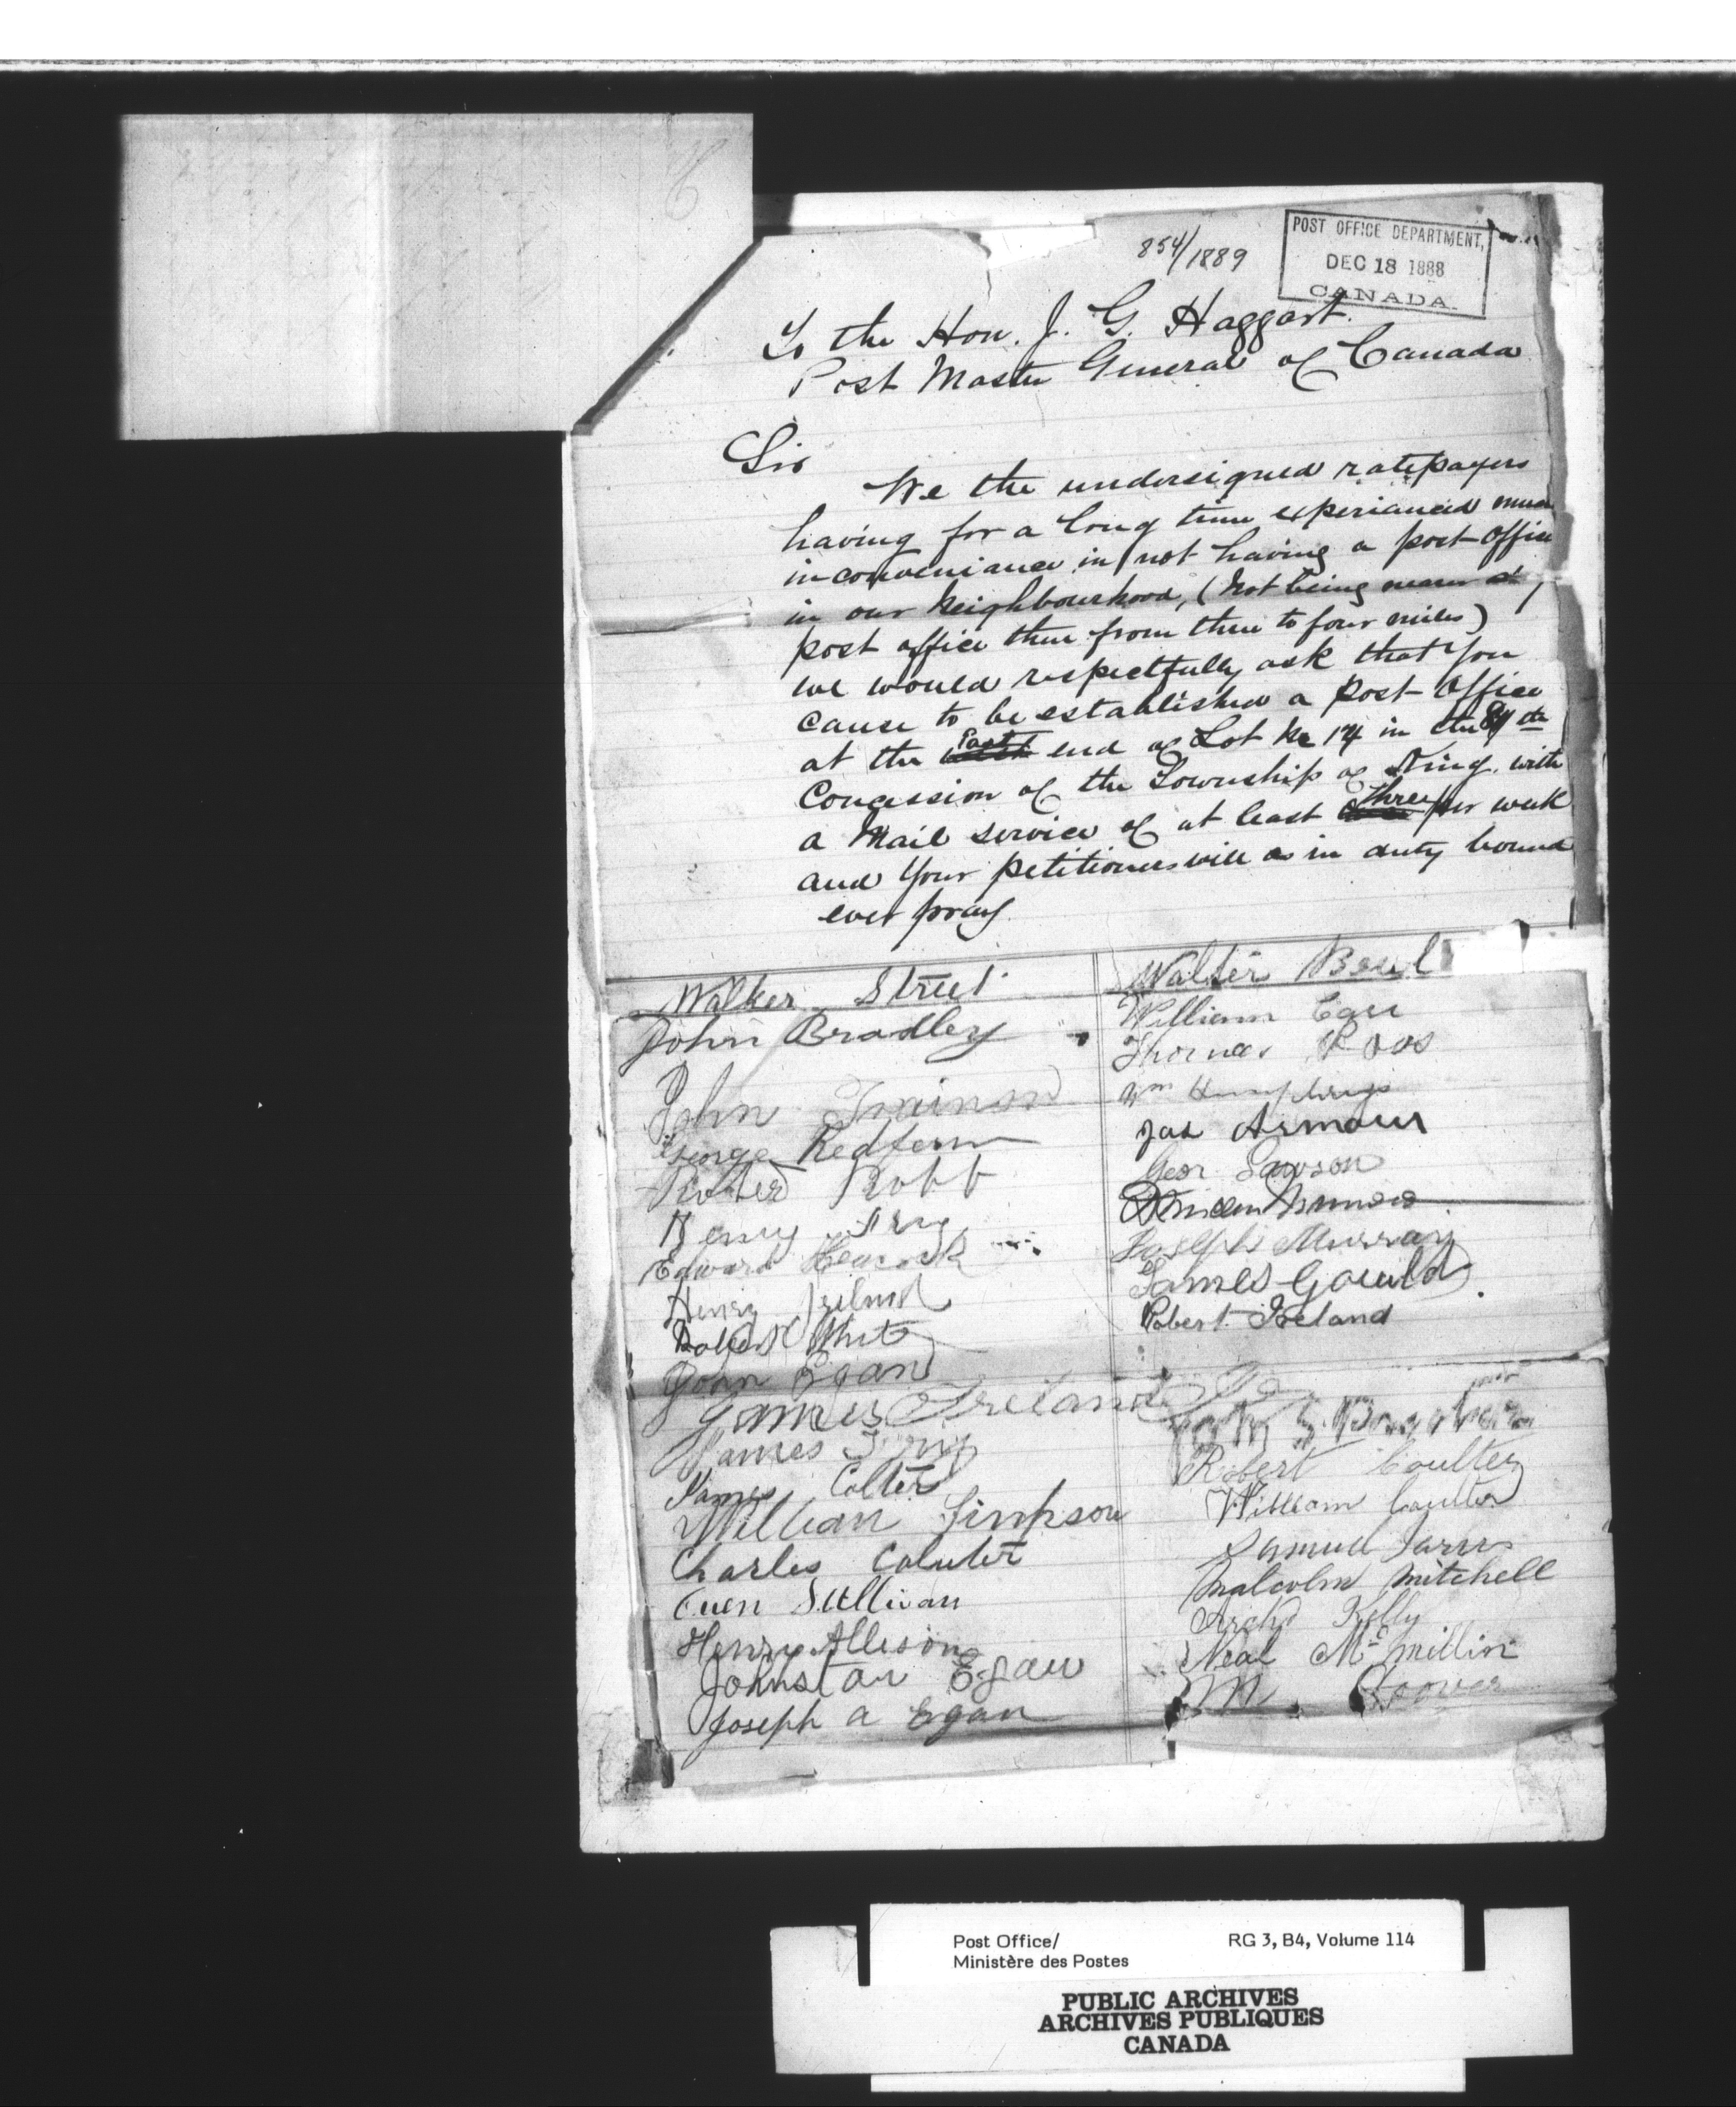 854/1889
POST OFFICE DEPARTMENT,
DEC 18 1888
CANADA
To the Hon. J. G. Haggart.
Post Master General of Canada
Sir
We the undersigned ratepayers
having for a long time experianced much
inconveniance in not having a post office
in our neighbourhood, (not being nearer a
post office then from three to four miles)
we would respectfully ask that you
cause to be established a post office
at the East end of Lot No 14 in the 8th
Concession of the Township of King. with
a Mail service of at least three per week
and your petitioners will as in duty bound
ever pray
Walker Street
John Bradley
John Trainor
George Redfern
Robert Robb
Henry
Edward Heacock
Henry
Robert White
John Egan
James Ireland
James
James Colter
William Simpson
Charles Coluter
Owen Sullivan
Henry Allison
Johnstan Egan
Joseph a Egan
Walter
William Carr
Thomas Ross
Wm Humphreys
Jas Armour
Geor Lawson
Duncan Munro
Joseph Murray
James Gould
Robert Ireland
Robert Coulter
William Coulter
Samuel
Malcolm Mitchell
Archd Kelly
Neal McMillin
M. Hoover
Post Office/
Ministère des Postes
RG 3, B4, Volume 114
PUBLIC ARCHIVES
ARCHIVES PUBLIQUES
CANADA